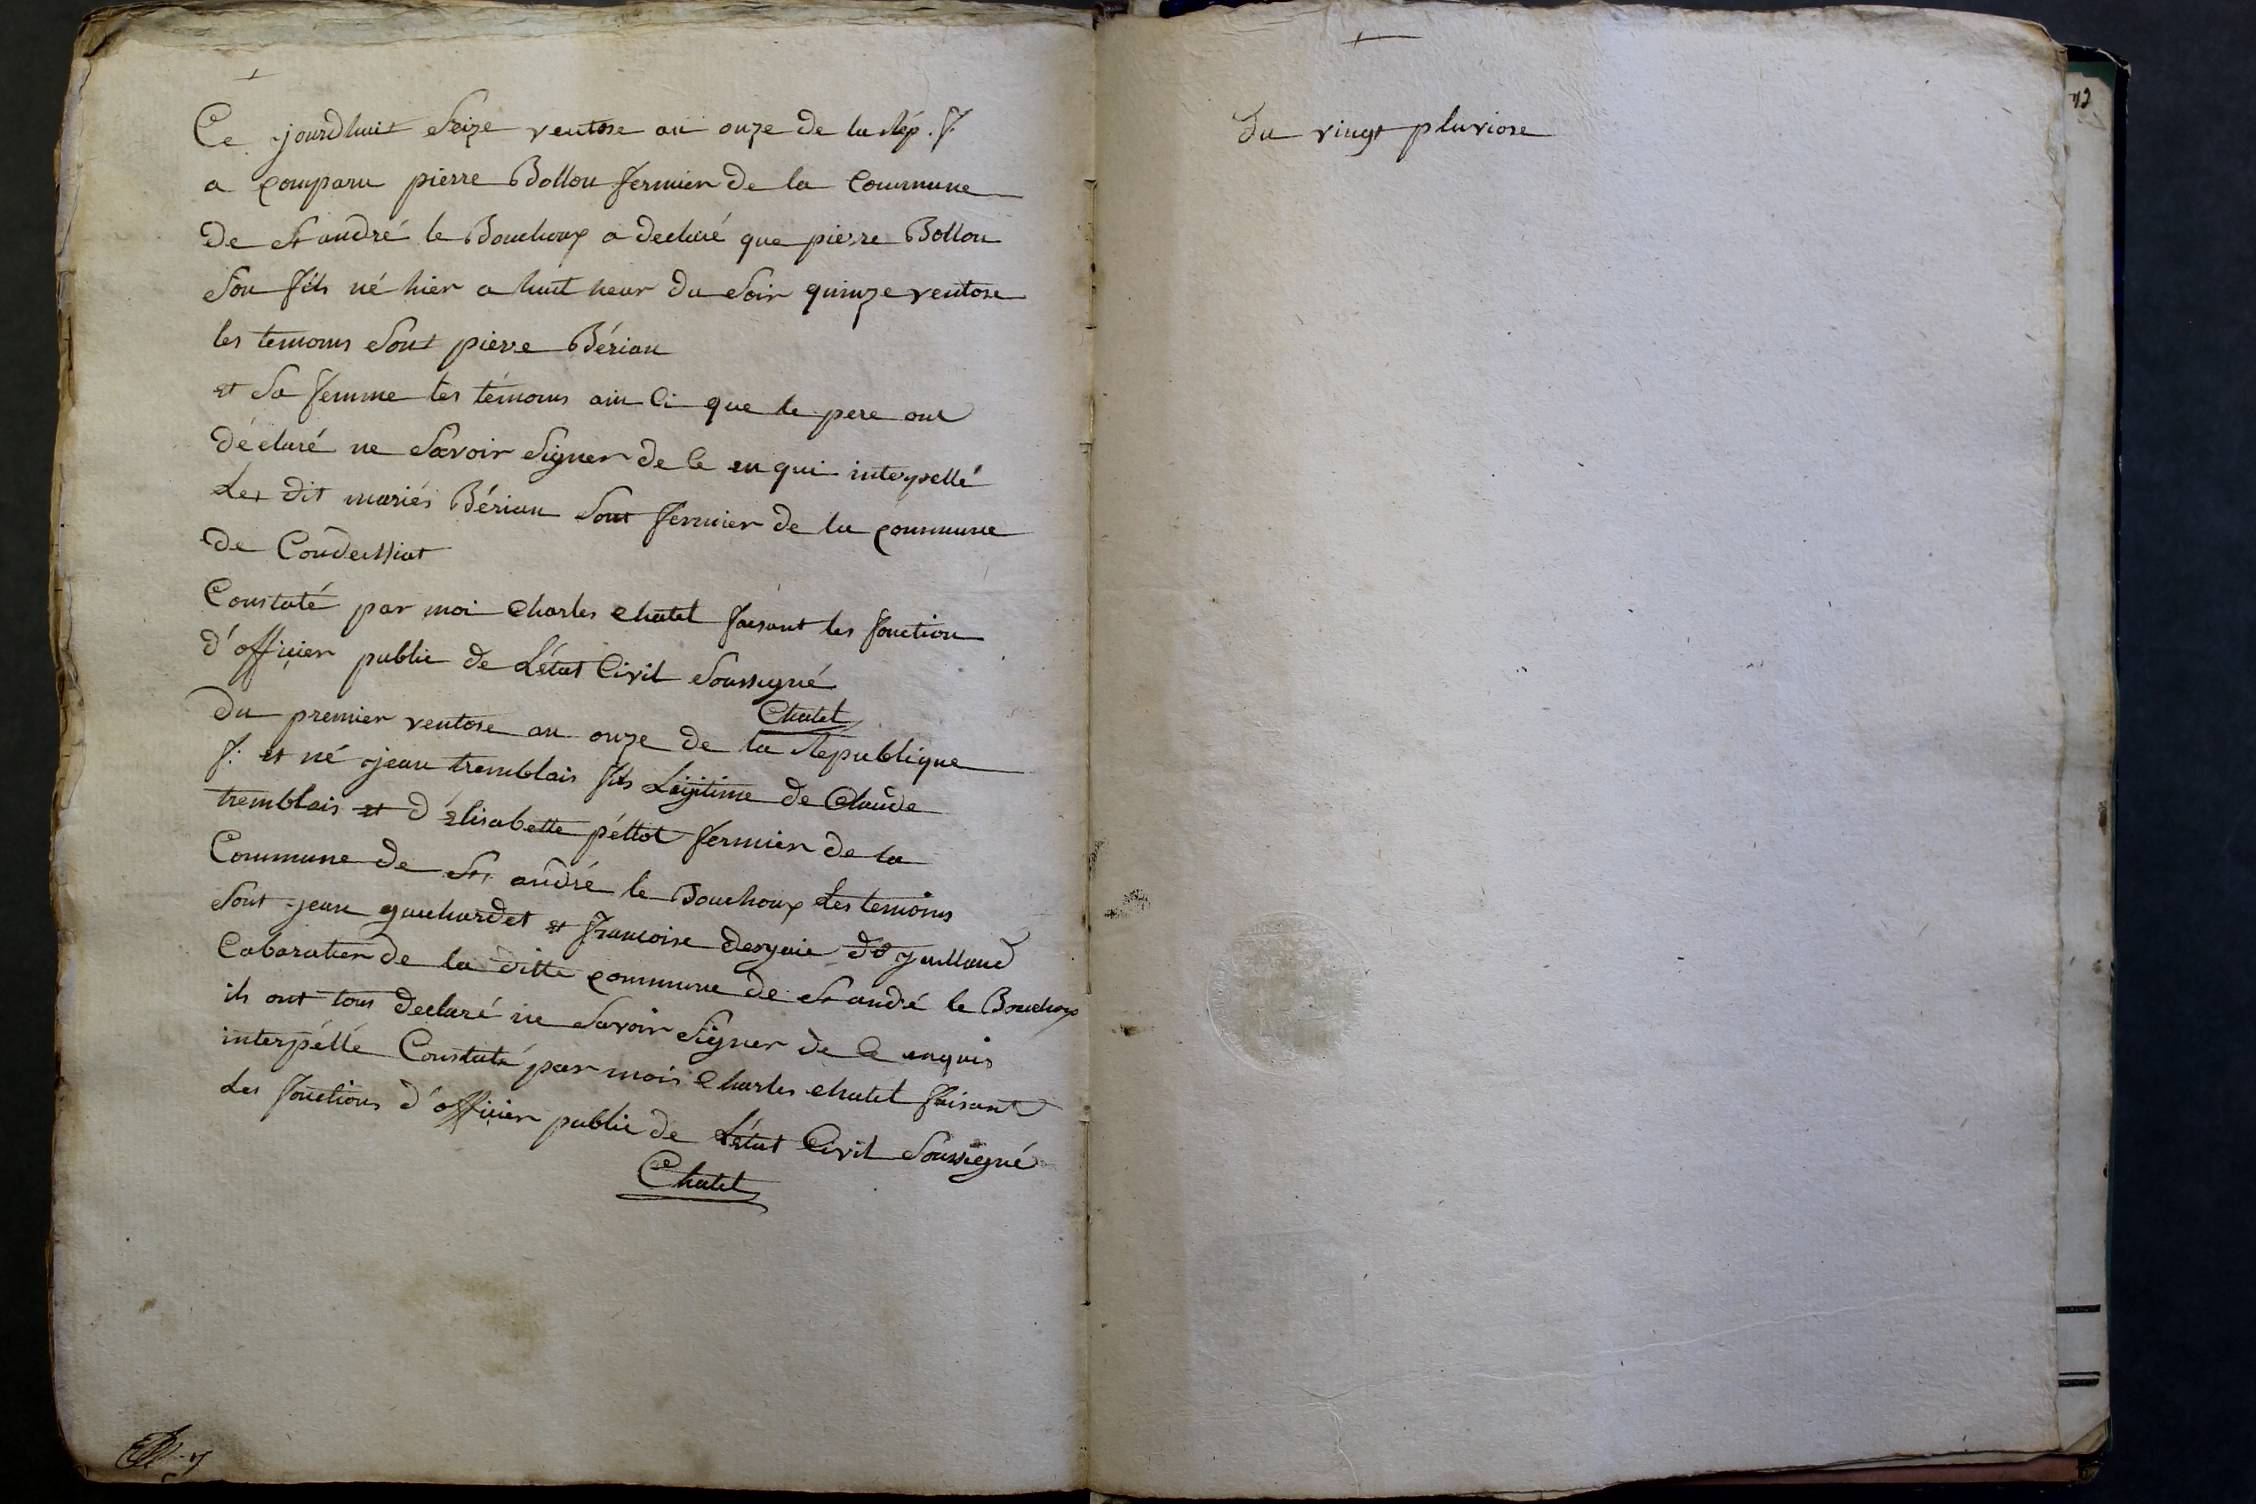 Ce jourdhuit Seize ventose an onze de la Rép. f.
a comparu pierre Bollon fermier de la Commune
de St andré le Bouchoux a declaré que pierre Bollon
Son fils né hier a huit heur du Soir quinze ventose
les temoins Sont pierre Bérian
et Sa femme les témoins ainci que le pere ont
déclaré ne Savoir Signer de ce enqui interpellé
Les dit mariés Bérian Sont fermier de la commune
de Condeissiat
Constaté par moi Charles Chatel faisant les fonction
d'officier public de L'état Civil Soussigné
Chatel
du premier ventose an onze de la Republique
f. et né jean tremblais fils Légitime de Claude
tremblais et d'élisabette péllot fermier de la
Commune de St andré le Bouchoux Les temoins
Sont jean guichardet et francoise
Cabaratier de la ditte commune de St andré le Bouchoux
ils ont tous declaré ne Savoir Signer de ce enquis
interpéllé Constaté par mois Charles Chatel faisant
Les fonctions d'officier public de L'état Civil Soussigné
Chatel
du vingt pluviose
12